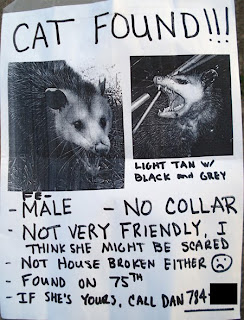 CAT FOUND!!!
LIGHT TAN W/
BLACK and GREY
FE-
- MALE - NO COLLAR
- NOT VERY FRIENDLY, I
THINK SHE MIGHT BE SCARED
- NOT HOUSE BROKEN EITHER ☹
- FOUND ON 75TH
- IF SHE'S YOURS, CALL DAN 784-